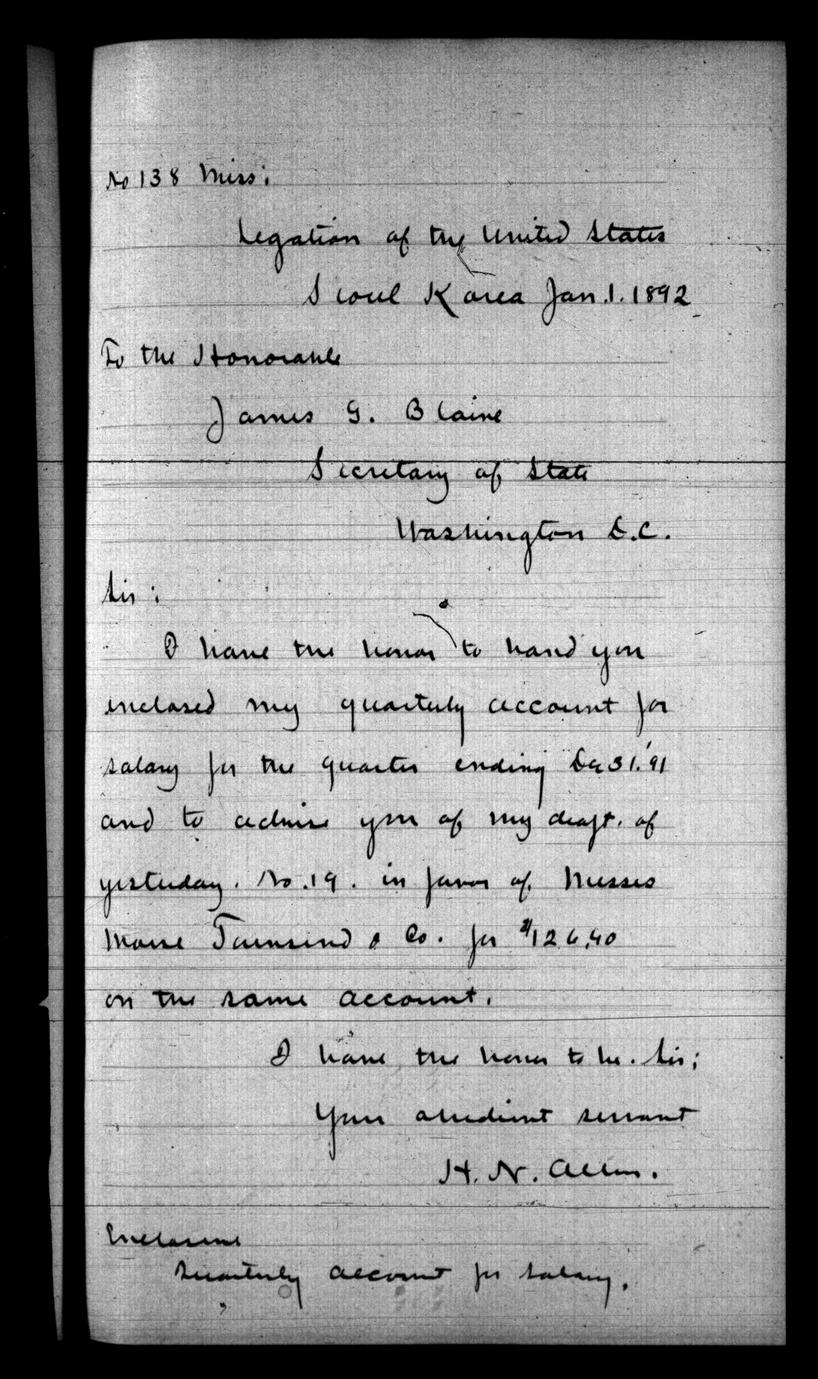 No 138 Miss:
Legation of the United States
Seoul Korea Jan. 1. 1892
To the Honorable
James G. Blaine
Secretary of State
Washington D.C.
Sir:
I have the honor to hand you
enclosed my quarterly account for
salary for the quarter ending Dec 31. '91
and to advise you of my draft. of
yesterday. No. 19. in favor of Messrs
Morse Townsend & Co. for $126.40
on the same account.
I have the honor to be. Sir;
Your obedient servant
H. N. Allen.
Enclosure
Quarterly account for salary.